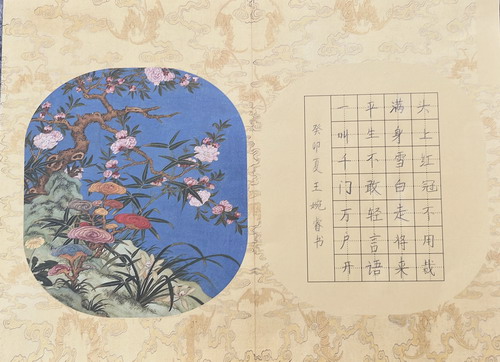 头上红冠不用裁
满身雪白走将来
平生不敢轻言语
一叫千门万户开
癸卯夏王婉睿书